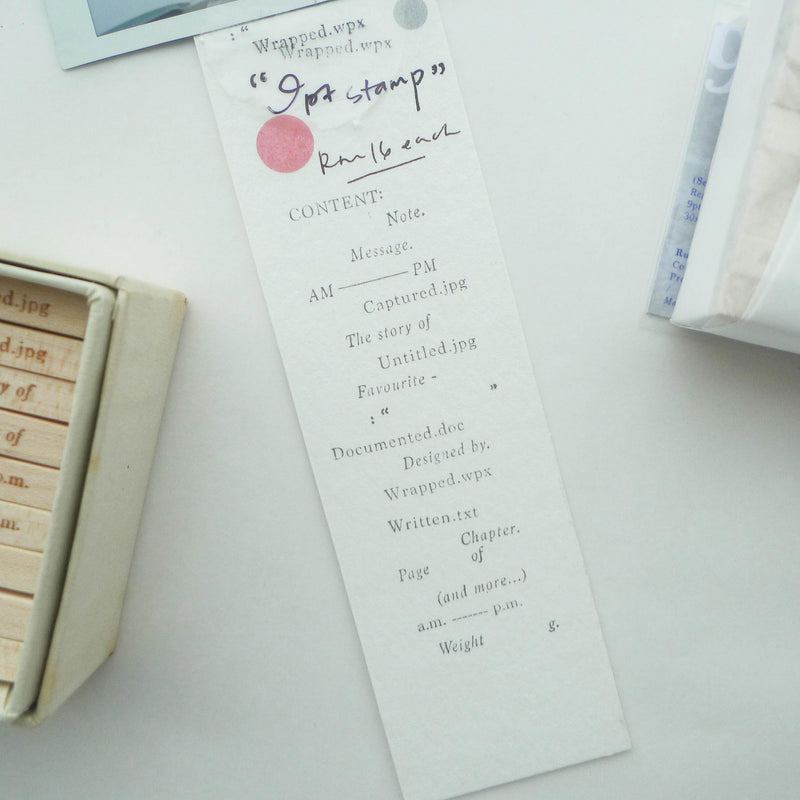 : “
Wrapped.wpx
Wrapped.wpx
“9pt stamp”
Rm16 each
CONTENT:
Note.
Message.
AM ———— PM
Captured.jpg
The story of
Untitled.jpg
Favourite -
: “ ”
Documented.doc
Designed by.
Wrapped.wpx
Written.txt
Chapter.
Page of
(and more...)
a.m. ------- p.m.
Weight g.
d.jpg
d.jpg
y of
of
o.m.
m.
9
(Se
Re
9pt
30x
Ru
Co
Pro
Ma